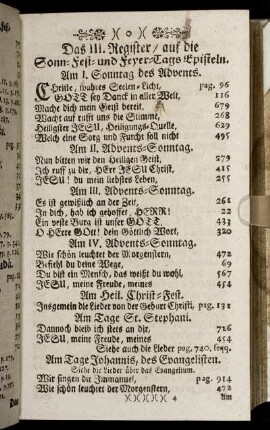 Das III. Register/ auf die
Sonn- Fest- und Feyer-Tags Episteln.
Am I. Sonntag des Advents.
Christe, wahres Seelen-Licht, pag. 96
GOTT sey Danck in aller Welt, 116
Mache dich mein Geist bereit, 679
Wacht auf rufft uns die Stimme, 268
Heiligster JESU, Heiligungs-Quelle, 629
Welch eine Sorg und Furcht soll nicht 495
Am II. Advents-Sonntag.
Nun bitten wir den Heiligen Geist, 279
Ich ruff zu dir, HErr JESU Christ, 415
JESU! du mein liebstes Leben, 255
Am III. Advents-Sonntag.
Es ist gewißlich an der Zeit, 261
In dich, hab ich gehoffet, HERR! 22
Ein veste Burg ist unser GOTT, 433
O HErre GOtt! dein Göttlich Wort, 320
Am IV. Advents-Sonntag.
Wie schön leuchtet der Morgenstern, 472
Befiehl du deine Wege, 69
Du bist ein Mensch, das weißt du wohl, 567
JESU, meine Freude, meines 454
Am Heil. Christ-Fest.
Insgemein die Lieder von der Geburt Christi, pag. 131
Am Tage St. Stephani.
Dannoch bleib ich stets an dir, 726
JESU, meine Freude, meines 454
Siehe auch die Lieder pag. 740. seqq.
Am Tage Johannis, des Evangelisten.
Siehe die Lieder über das Evangelium.
Wir singen dir Immanuel, pag. 914
Wie schön leuchtet der Morgenstern, 472
4 Am